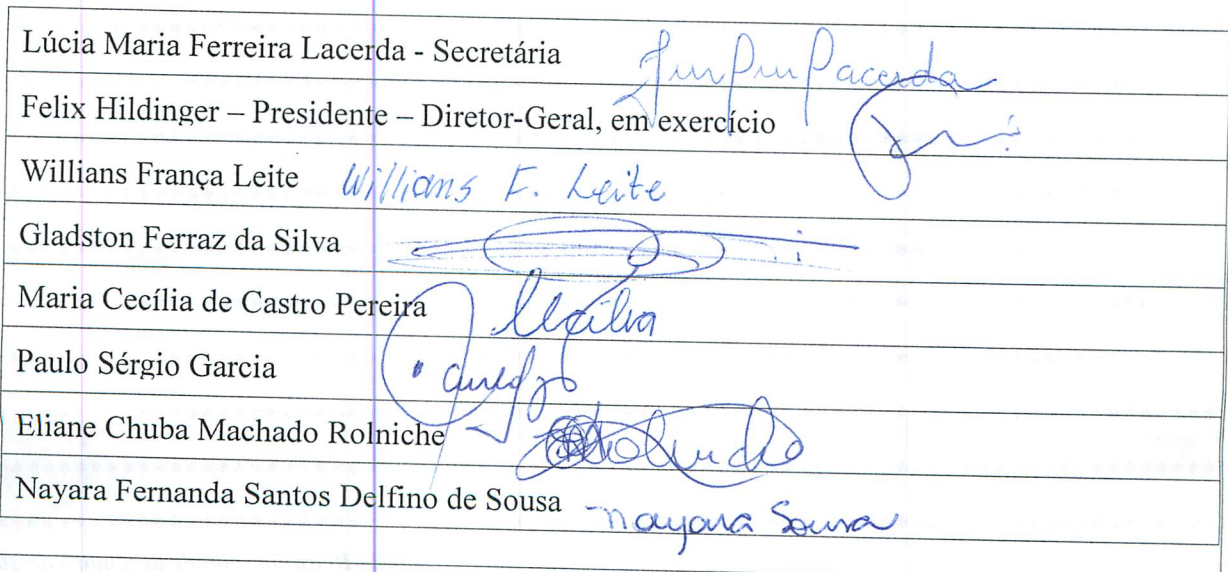 Lúcia Maria Ferreira Lacerda - Secretária Lacerda
Felix Hildinger – Presidente – Diretor-Geral, em exercício
Willians França Leite Willians F. Leite
Gladston Ferraz da Silva
Maria Cecília de Castro Pereira Cecília
Paulo Sérgio Garcia
Eliane Chuba Machado Rolniche
Nayara Fernanda Santos Delfino de Sousa Nayara Sousa